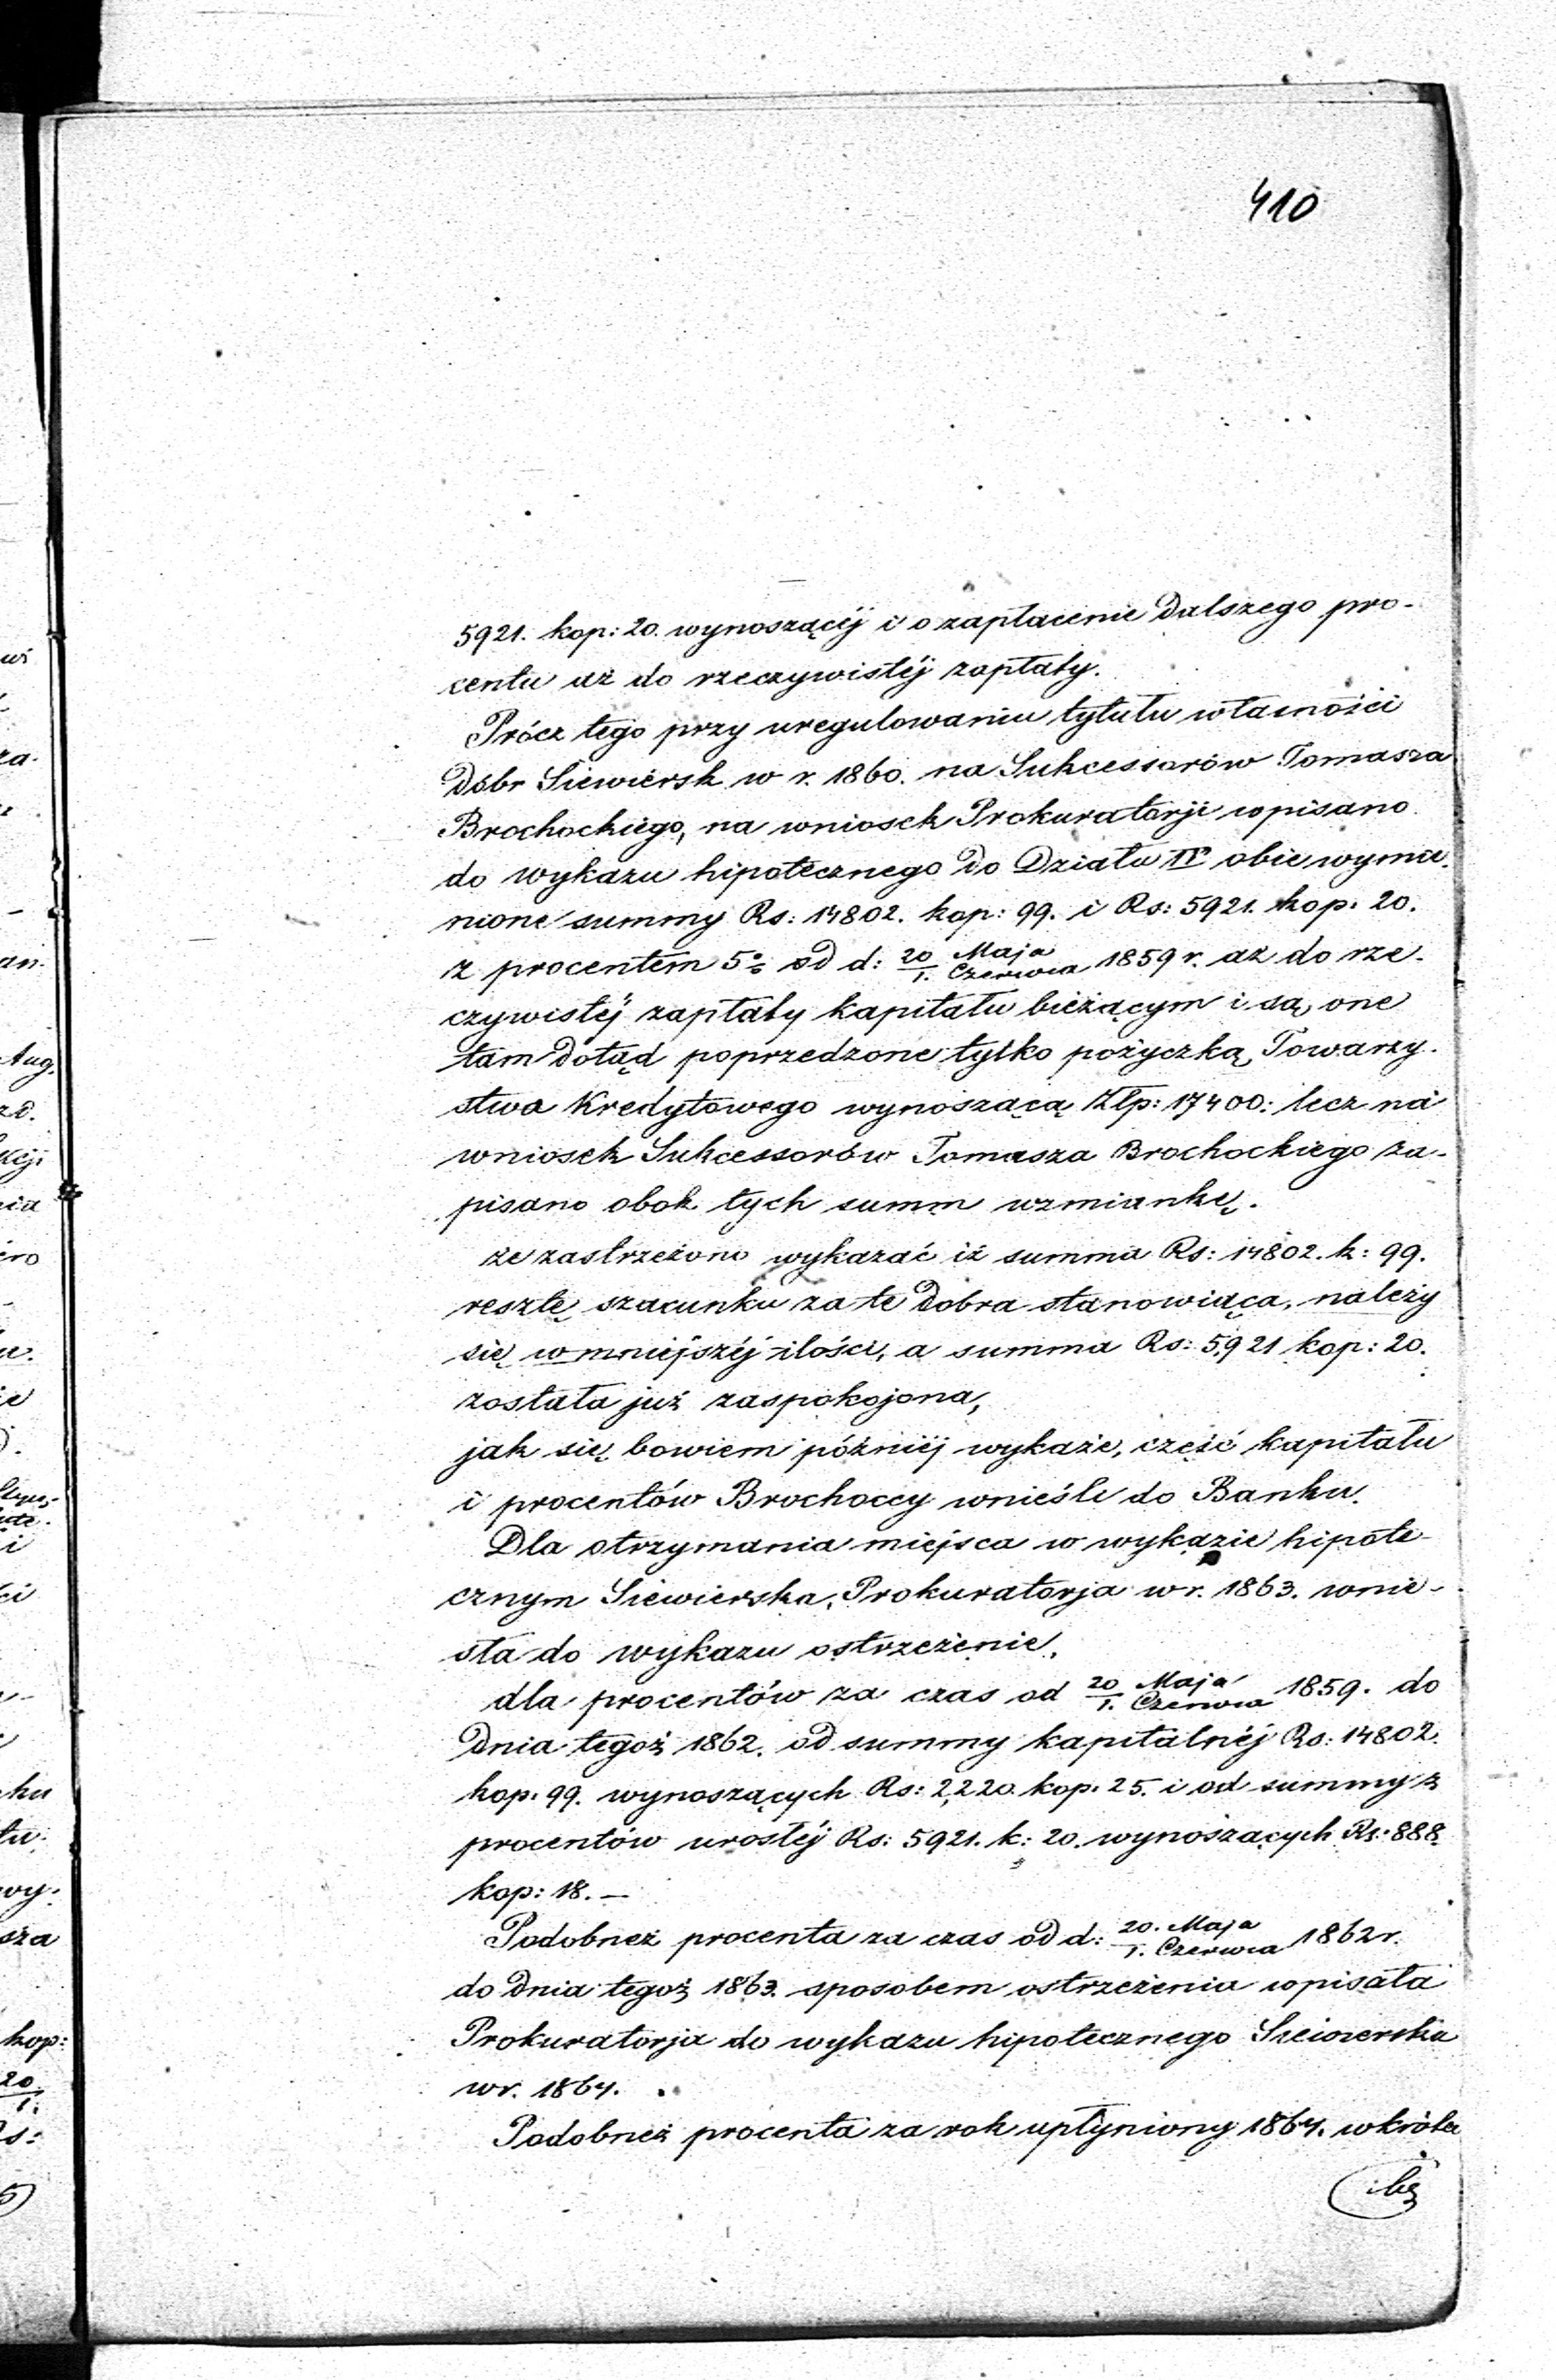 410
5921. kop: 20. wynoszącéj i o zapłacenie dalszego pro-
centu aż do rzeczywistéj zapłaty.
Prócz tego przy uregulowaniu tytułu własności
Dóbr Siewiersk w r. 1860. na Sukcessorów Tomasza
Brochockiego, na wniosek Prokuratorji wpisano
do wykazu hipotecznego do Działu IV obie wymie-
nione summy Rs: 14802. kop: 99. i Rs: 5921. kop: 20.
z procentem 5% od d: 20 Maja / 1. Czerwca 1859 r. aż do rze-
czywistéj zapłaty kapitału bieżącym i są one
tam dotąd poprzedzone tylko pożyczką Towarzy-
stwa Kredytowego wynoszącą Złp: 17400: lecz na
wniosek Sukcessorów Tomasza Brochockiego za-
pisano obok tych summ wzmiankę.
że zastrzeżono wykazać iż summa Rs: 14802. k: 99.
resztę szacunku za te dobra stanowiąca, należy
się w mniejszéj ilości, a summa Rs: 5921 kop: 20.
została już zaspokojona,
jak się bowiem późniéj wykaże, część kapitału
i procentów Brochoccy wnieśli do Banku.
Dla otrzymania miejsca w wykazie hipote-
cznym Siewierska, Prokuratorja w r. 1863. wnie-
sła do wykazu ostrzeżenie,
dla procentów za czas od 20 Maja / 1. Czerwca 1859. do
dnia tegoż 1862. od summy kapitalnéj Rs: 14802.
kop. 99. wynoszących Rs: 2,220. kop. 25. i od summy z
procentów urosłéj Rs: 5921. k: 20. wynoszących Rs: 888.
kop: 18. —
Podobnież procenta za czas od d: 20. Maja / 1. Czerwca 1862 r.
do dnia tegoż 1863. sposobem ostrzeżenia wpisała
Prokuratorja do wykazu hipotecznego Siewierska
w r. 1864.
Podobnież procenta za rok upłyniony 1864. wkrótce